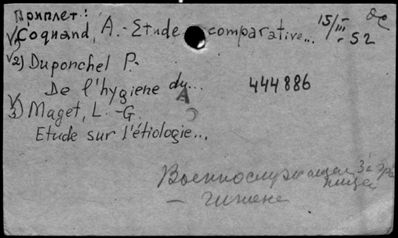 Приплет:
1) Coquand, A. - Etude comparative... 15/III - 52
2) Duponchel P.
De l'hygiene du... 444886
A
3) Maget, L.-G.
Etude sur l'étiologie...
- гигиене